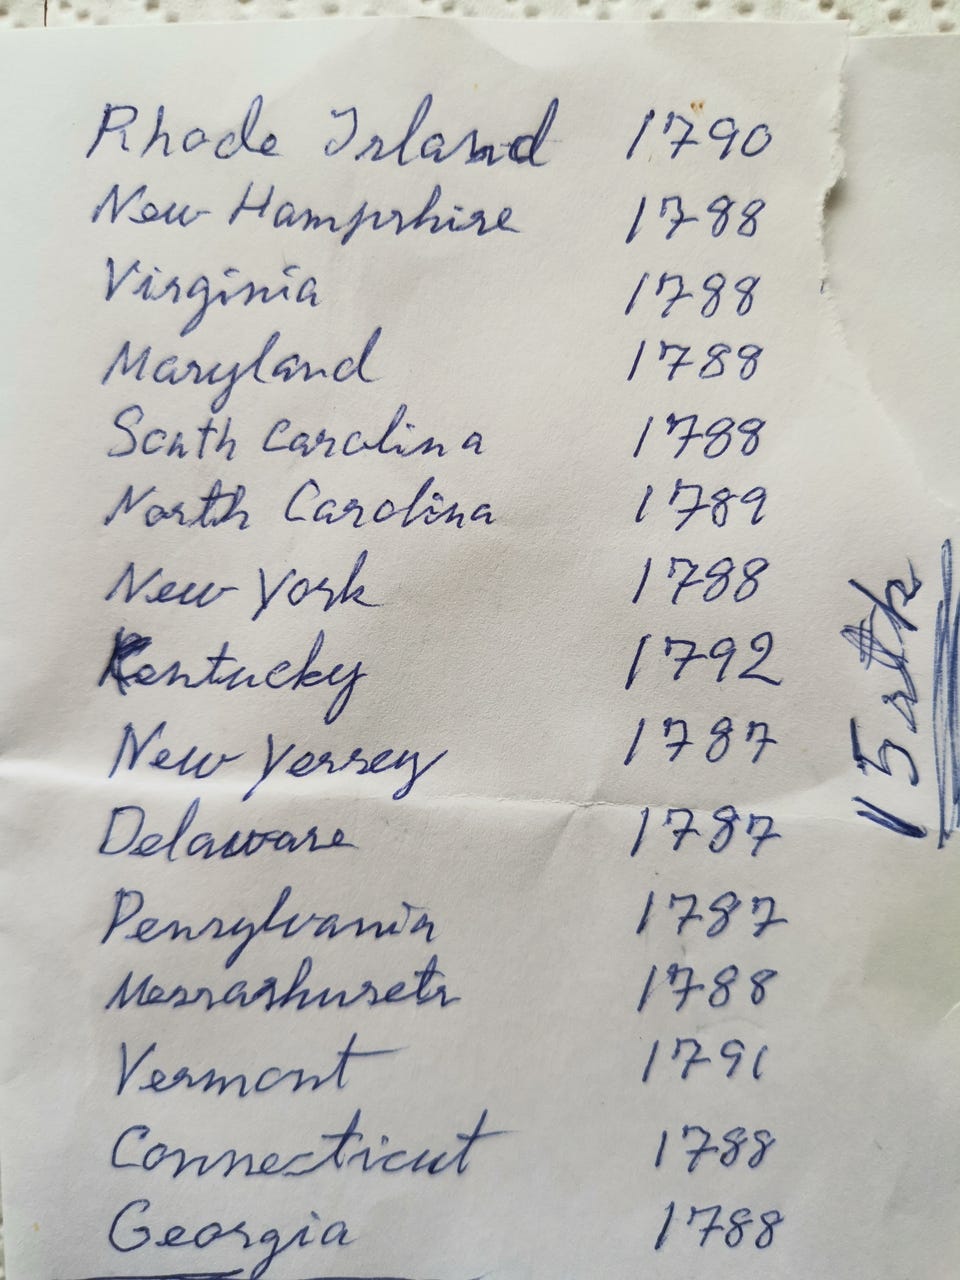 Rhode Island 1790
New Hampshire 1788
Virginia 1788
Maryland 1788
South Carolina 1788
North Carolina 1789
New York 1788
Kentucky 1792
New Yersey 1787
Delaware 1787
Pensylvania 1787
Massashusets 1788
Vermont 1791
Connecticut 1788
Georgia 1788
15